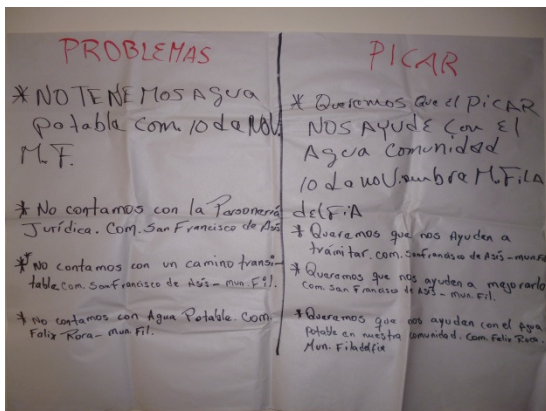 PROBLEMAS
* NO TENEMOS Agua
Potable Com. 10 de NOV.
M.F.
* No contamos con la Personería
Jurídica. Com. San Francisco de Asís
* No contamos con un camino transi-
table Com. San Francisco de Asís - mun. Fil.
* No contamos con Agua Potable. Com.
Felix Rora - Mun. Fil.
PICAR
* Queremos que el PiCAR
NOS AYUDE Con El
Agua Comunidad
10 de noviembre M. FiLA
delFiA
* Queremos que nos Ayuden a
trámitar. com. San Francisco de Asís - mun. Fil
* Queremos que nos ayuden a mejorarlo
Com. San Francisco de Asís - mun. Fil.
* Queremos que nos ayuden con el Agua
Potable en nuestra comunidad. Com. Felix Roca.
Mun. Filadelfia